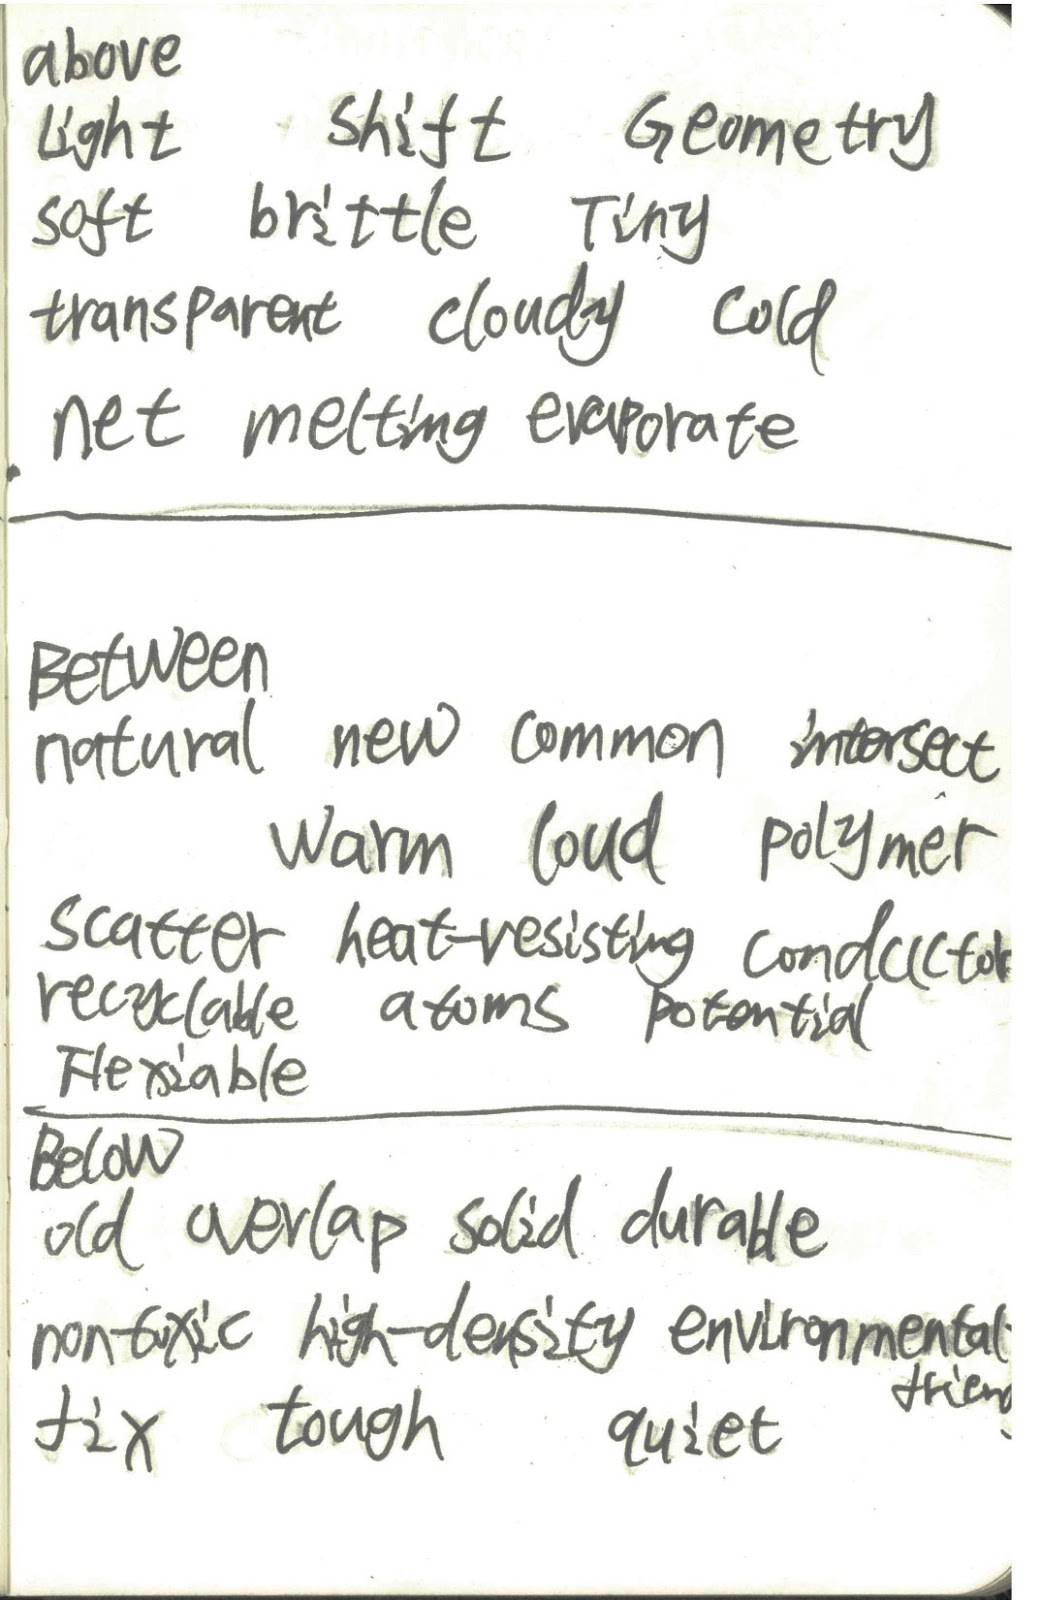 above
Light Shift Geometry
soft brittle Tiny
transparent cloudy cold
net melting evaporate
Between
natural new common intersect
warm loud polymer
scatter heat-resisting conductor
recyclable atoms potential
Flexiable
Below
old overlap solid durable
non-toxic high-density environmental-
friend
fix tough quiet